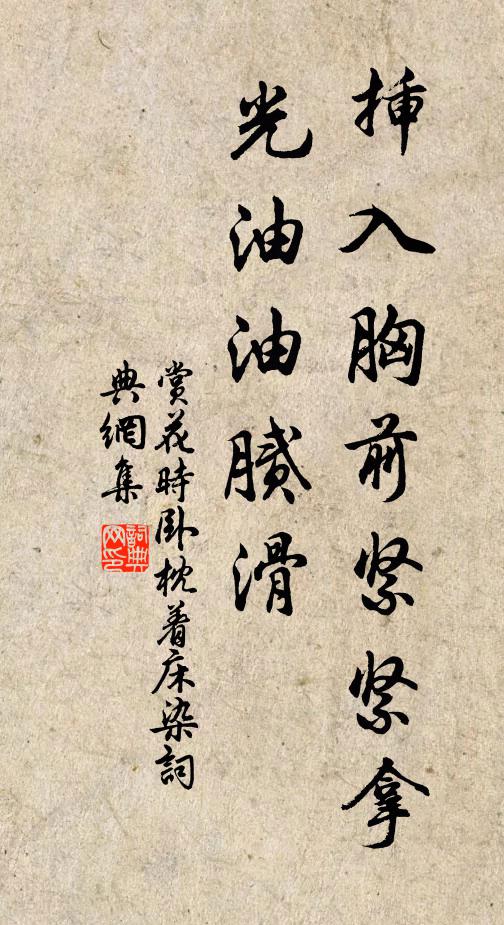 挿入胸前紧紧拿
光油油腻滑
赏花時卧枕着床染詞
典網集
詞典
网印